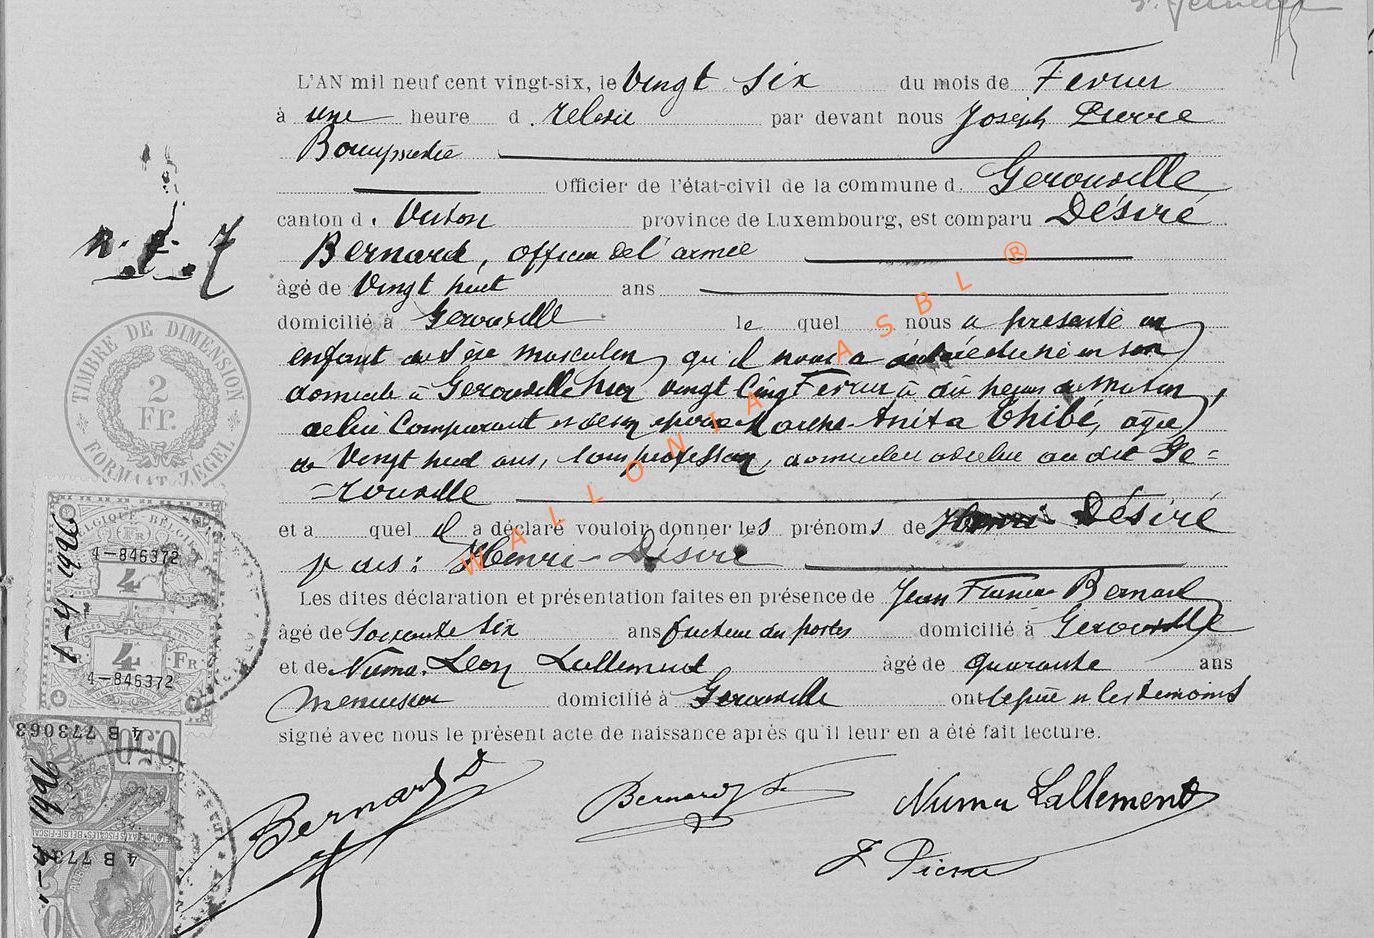 L'AN mil neuf cent vingt-six, le Vingt Six du mois de Fevrier
à une heure d. relevée par devant nous Joseph Pierre
Officier de l'état-civil de la commune d. Gerouville
canton d. Virton province de Luxembourg, est comparu Désiré
Bernard, officier de l'armée
âgé de Vingt huit ans
domicilié à Gerouville le quel nous a presenté un
enfant du sexe masculin, qu'il nous a déclaré être né en son
domicile à Gerouville hier vingt Cinq Fevrier à dix heures du matin,
de lui Comparant et de son épouse Anita Thibé, agée
de Vingt huit ans, sans profession, domiciliée avec lui au dit Ge=
=rouville
et a quel il a déclaré vouloir donner les prénoms de Henri Désiré
Henri-Désiré
Les dites déclaration et présentation faites en présence de Jean Bernard
âgé de Soixante six ans facteur des postes domicilié à Gerouville
et de Numa Léon Lallement âgé de quarante ans
menuisier domicilié à Gerouville ont le père et les témoins
signé avec nous le présent acte de naissance après qu'il leur en a été fait lecture.
Bernard D
Bernard
Numa Lallement
J Pierre
n. f. 7
TIMBRE DE DIMENSION
2
Fr.
FORMAAT-ZEGEL
BELGIQUE BELGIË
4-846372
4
4
FR
4-846372
4 B 773063
0.50
4 B 773
WALLONIA ASBL ®